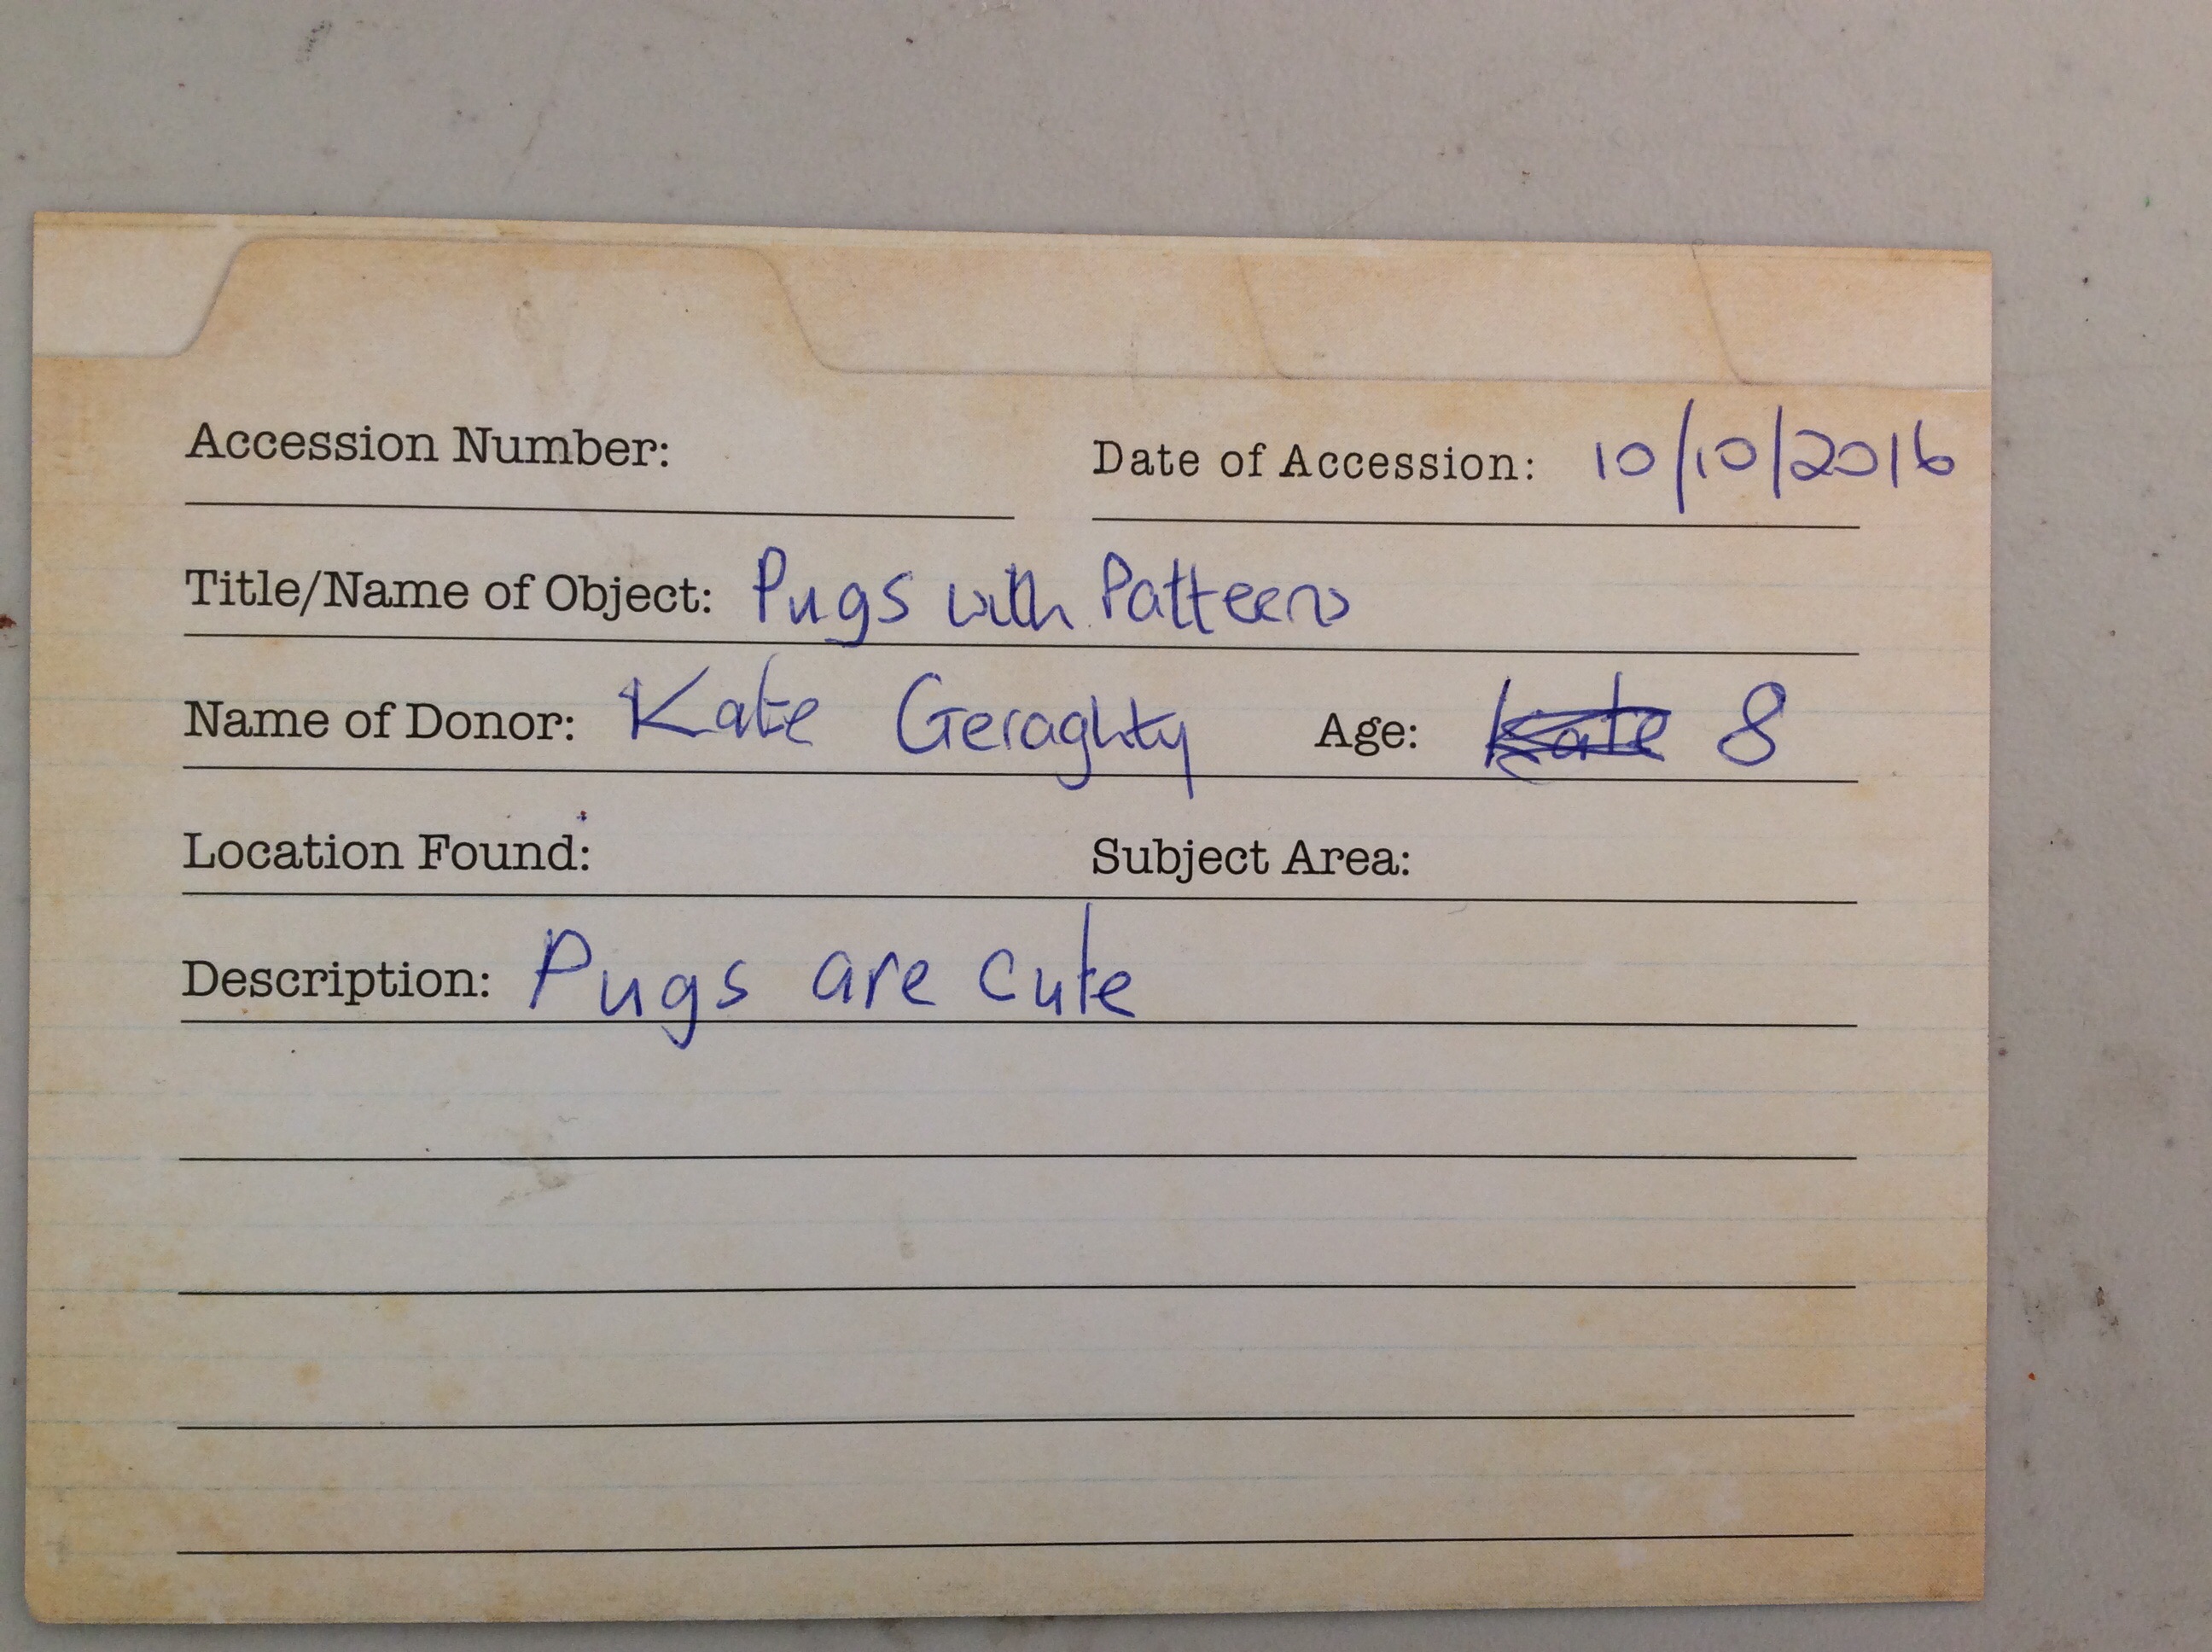 Accession Number: Date of Accession: 10/10/2016
Title/Name of Object: Pugs with Patterns
Name of Donor: Kate Geraghty Age: Kate 8
Location Found: Subject Area:
Description: Pugs are cute